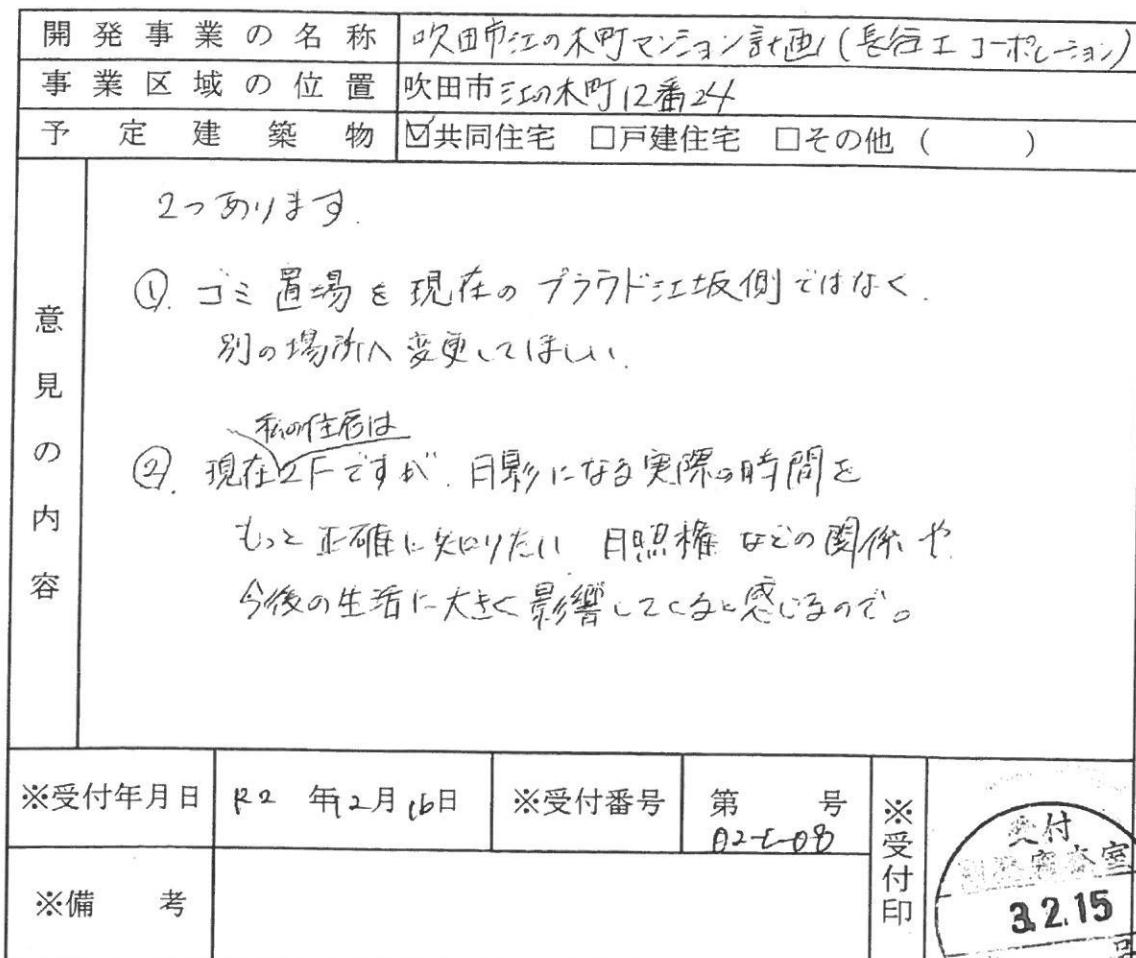 開発事業の名称 吹田市江の木町マンション計画(長谷工コーポレーション)
事業区域の位置 吹田市江の木町12番24
予定建築物 ☑共同住宅 □戸建住宅 □その他( )
意見の内容
2つあります.
①. ゴミ置場を現在のプラウド江坂側ではなく.
別の場所へ変更してほしい.
私の住居は
②. 現在2Fですが.日影になる実際の時間を
もっと正確に知りたい 日照権などの関係や
今後の生活に大きく影響してくると感じるので。
※受付年月日 R2年12月16日 ※受付番号 第 号
※受付印
受付
審査室
3.2.15
※備考